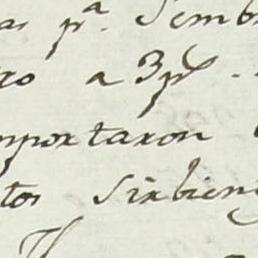 as pᵃ. Sembr
ro a 3 ps.
mportaron
tos Sirbien